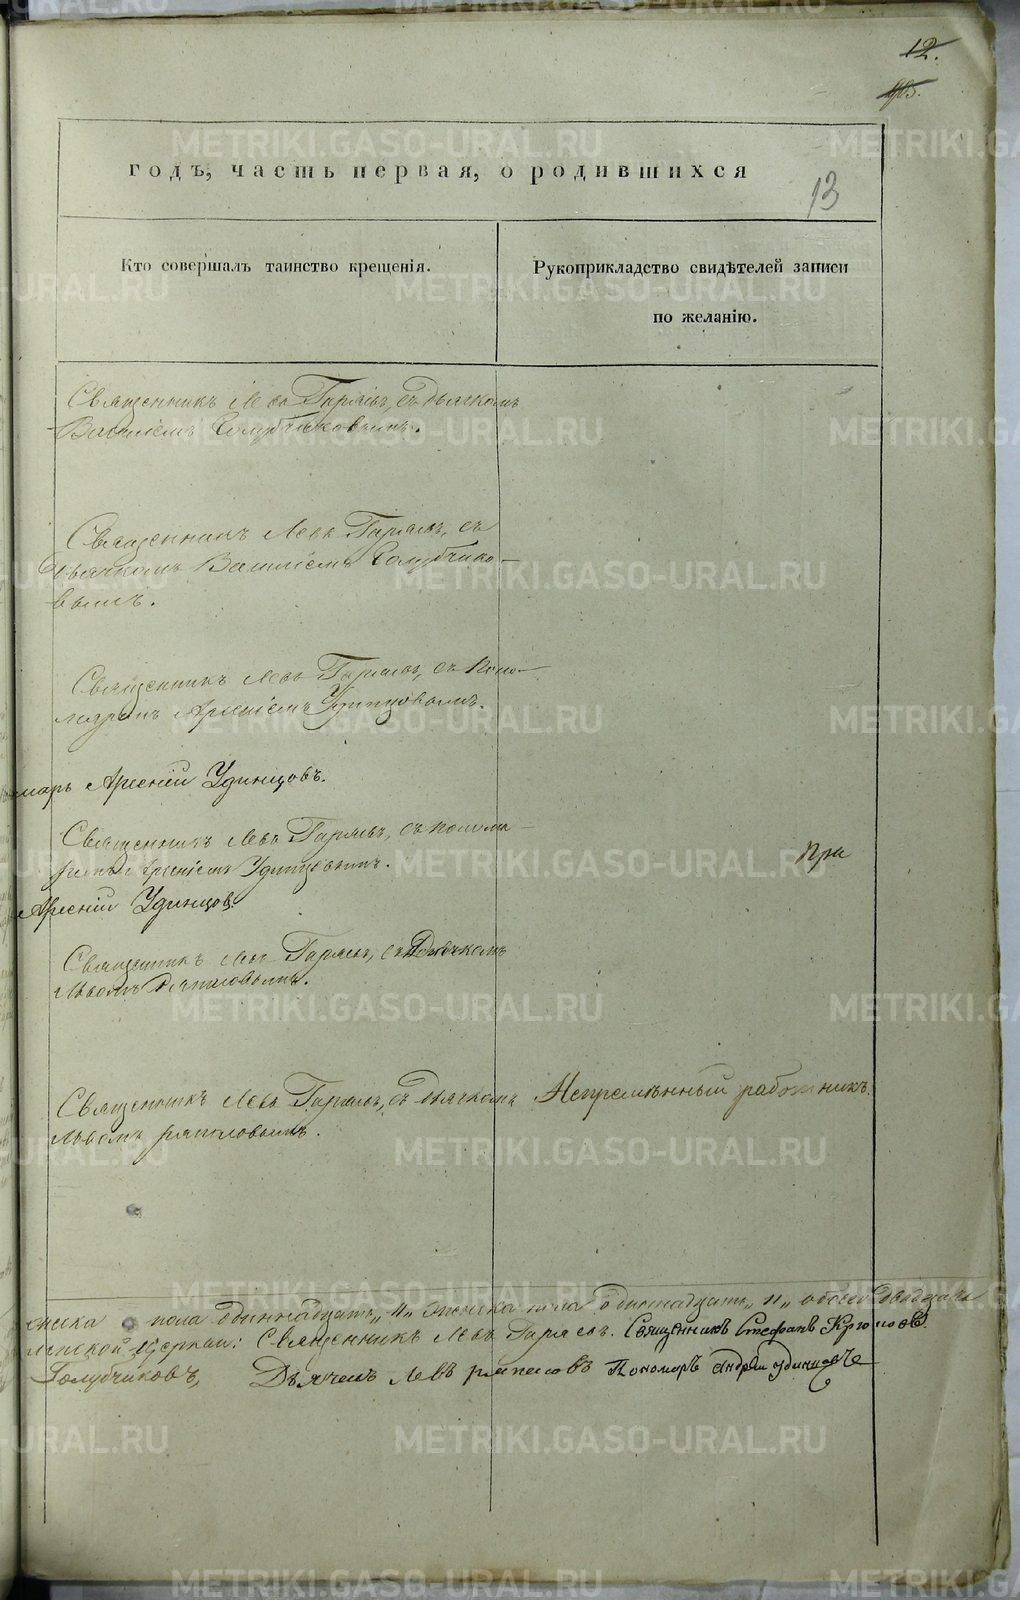 12.
13
годъ, часть первая, о родившихся
Кто совершалъ таинство крещенія.
Рукоприкладство свидѣтелей записи
по желанію.
Священникъ Левъ Гаряевъ, съ дьячкомъ
Василіемъ Голубчиковымъ.
Священникъ Левъ Гаряевъ, съ
дьячкомъ Василіемъ Голубчико-
вымъ.
Священникъ Левъ Гаряевъ, съ Поно-
маремъ Арсеніемъ Удинцовымъ.
марь Арсеній Удинцовъ.
Священникъ Левъ Гаряевъ, съ понома-
ремъ Арсеніемъ Удинцовымъ.
При
Арсеній Удинцовъ.
Священникъ Левъ Гаряевъ, съ Дьячкомъ
Львомъ
Священникъ Левъ Гаряевъ, съ дьячкомъ
Непремѣнный работникъ
Львомъ
пола одиннадцать „11„ женска пола одиннадцать „11„ обоего двадцать
церкви: Священникъ Левъ Гаряевъ. Священникъ Стефанъ
Голубчиковъ, Дьячекъ Левъ Пономарь Андрей Удинцовъ
METRIKI.GASO-URAL.RU